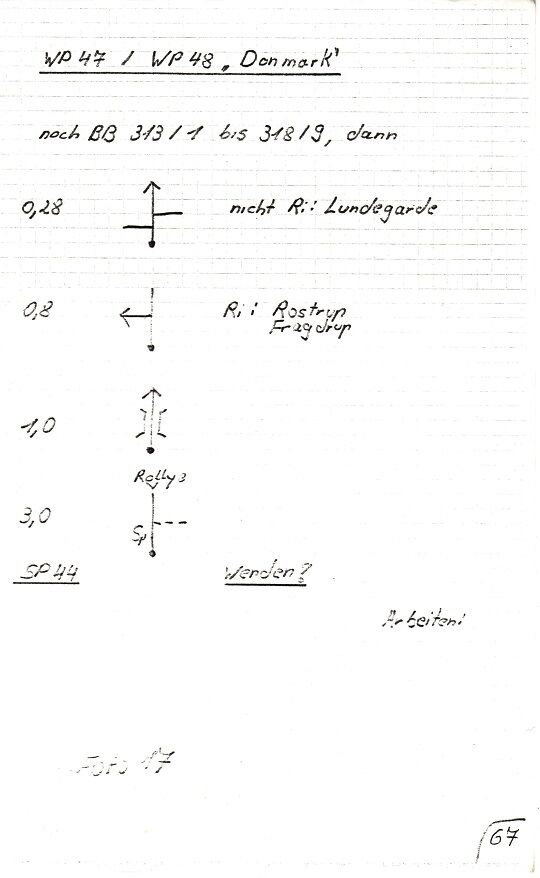 WP 47 / WP 48 „Danmark"
nach BB 313/1 bis 318/9, dann
0,28 nicht Ri: Lundegarde
0,8 Ri: Rostrup
Fragdrup
1,0
Rally 3
3,0 Sp
SP 44 Wenden?
Arbeiten!
Foto 17
67